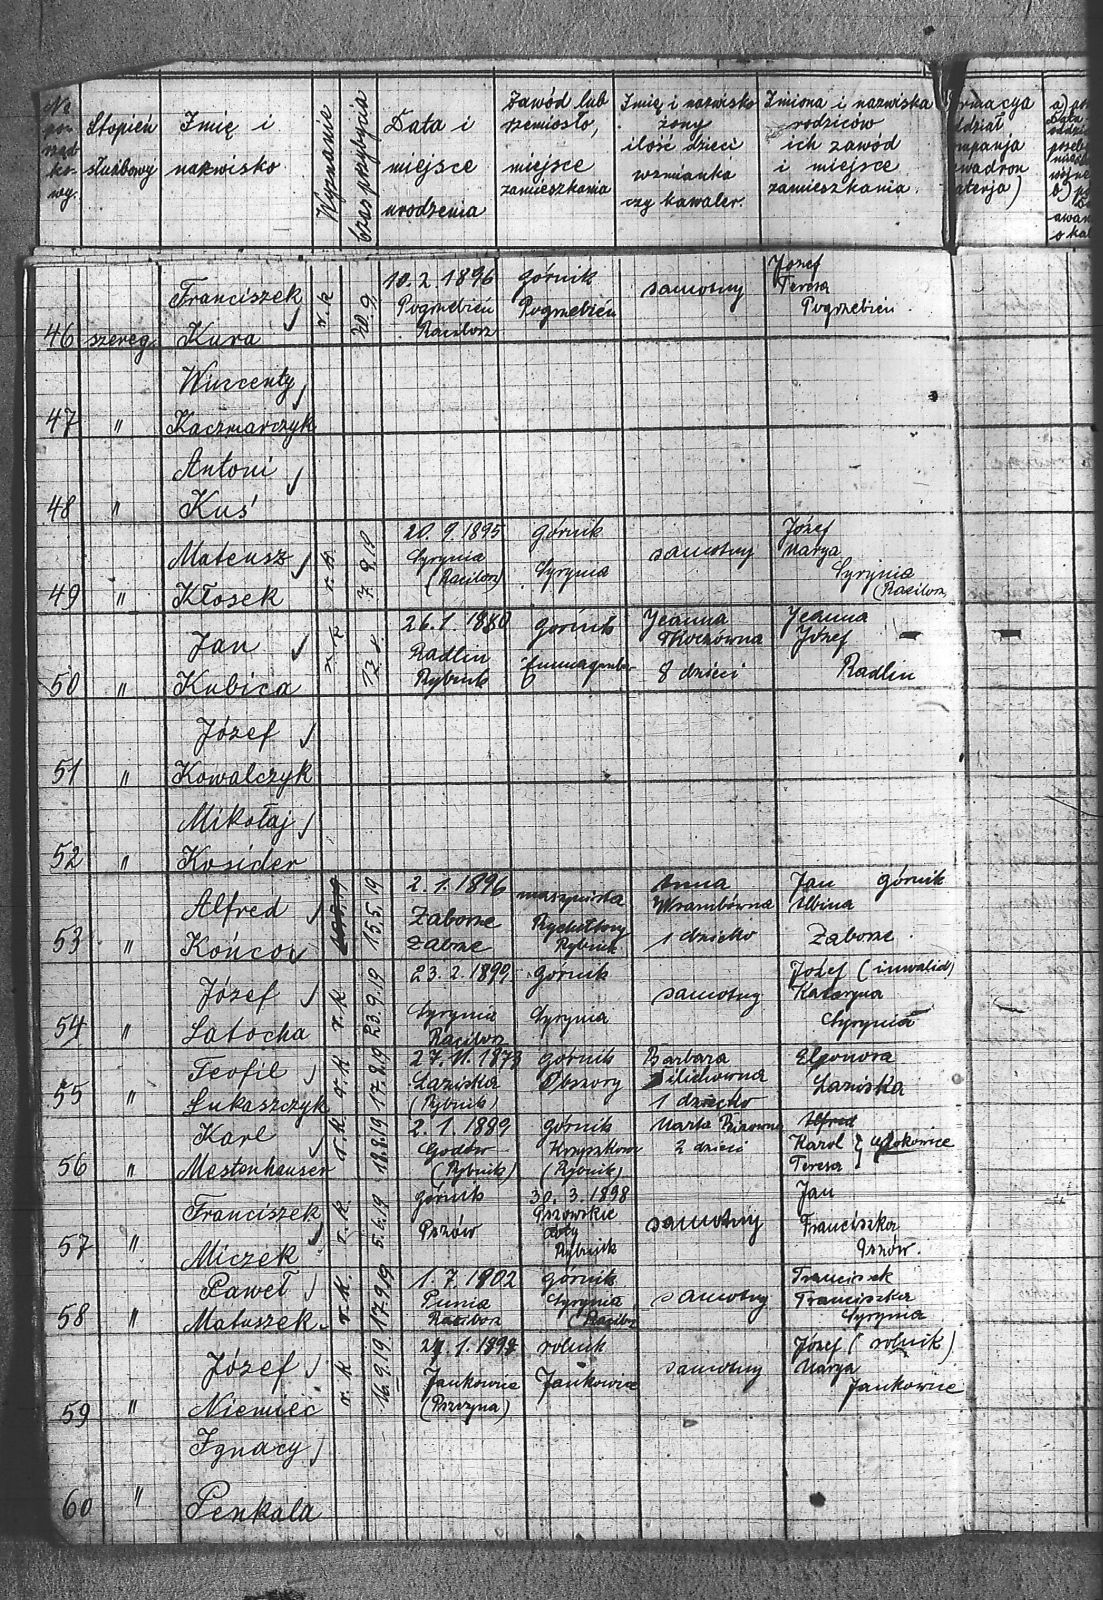 No porządkowy.
Stopień służbowy
Imię i nazwisko
Wyznanie
Czas przybycia
Data i miejsce urodzenia
Zawód lub rzemiosło, miejsce zamieszkania
Imię i nazwisko żony ilość dzieci wzmianka czy kawaler.
Imiona i nazwiska rodziców ich zawód i miejsce zamieszkania.
rmacya
ddział
mpanja
wadron
aterja)
46 szereg. Franciszek Kura
r. k
10. 2. 1896 Pogrzebień Racibórz
górnik Pogrzebień
samotny
Józef Teresa Pogrzebień
47 " Wincenty Kaczmarczyk
48 " Antoni Kuś
49 " Mateusz Kłosek
r. k.
20. 9. 1895 Syrynia (Racibórz)
górnik Syrynia
samotny
Józef Marya Syrynia (Racibórz
50 " Jan Kubica
r. k
26. 1. 1880 Radlin Rybnik
górnik
Joanna 8 dzieci
Joanna Józef Radlin
51 " Józef Kowalczyk
52 " Mikołaj Kosider
53 " Alfred Końcoś
15.5.19
2. 1. 1896 Zaborze Zabrze
maszynista Rydułtowy Rybnik
Anna 1 dziecko
Jan górnik Albina Zaborze.
54 " Józef Latocha
r. k. 23.9.19
23. 2. 1899. Syrynia Racibórz
górnik Syrynia
samotny
Józef (inwalid) Katarzyna Syrynia
55 " Teofil Łukaszczyk
r. k 17.8.19
27. 11. 1873 Łaziska (Rybnik)
górnik Obszory
Barbara 1 dziecko
Eleonora Łaziska
56 " Karl Mestenhauser
r. k. 18.8.19
2. 1. 1889 Godów (Rybnik)
górnik Krzyszkow (Rybnik)
Marta 2 dzieci
Alfred Karol Teresa
57 " Franciszek Miczek
r. k. 5.6.19
górnik Pszów
30. 3. 1898 Pszowskie doły Rybnik
samotny
Jan Franciszka Pszów.
58 " Paweł Matuszek
r. k. 17.9.19
1. 7. 1902 Racibórz
górnik Syrynia (Racibórz
samotny
Franciszek Franciszka Syrynia
59 " Józef Niemiec
r. k 16.9.19
Jankowice (Pszczyna)
rolnik Jankowice
samotny
Józef (rolnik) Marya Jankowice
60 " Ignacy Penkala